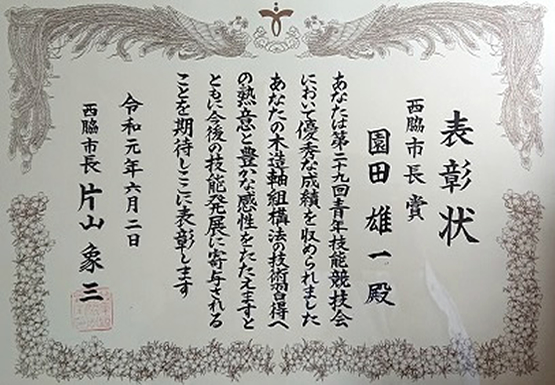 表彰状
西脇市長賞
園田雄一殿
あなたは第二十九回青年技能競技会
において優秀な成績を収められました
あなたの木造軸組構法の技術習得へ
の熱意と豊かな感性をたたえますと
ともに今後の技能発展に寄与される
ことを期待しここに表彰します
令和元年六月二日
西脇市長 片山象三